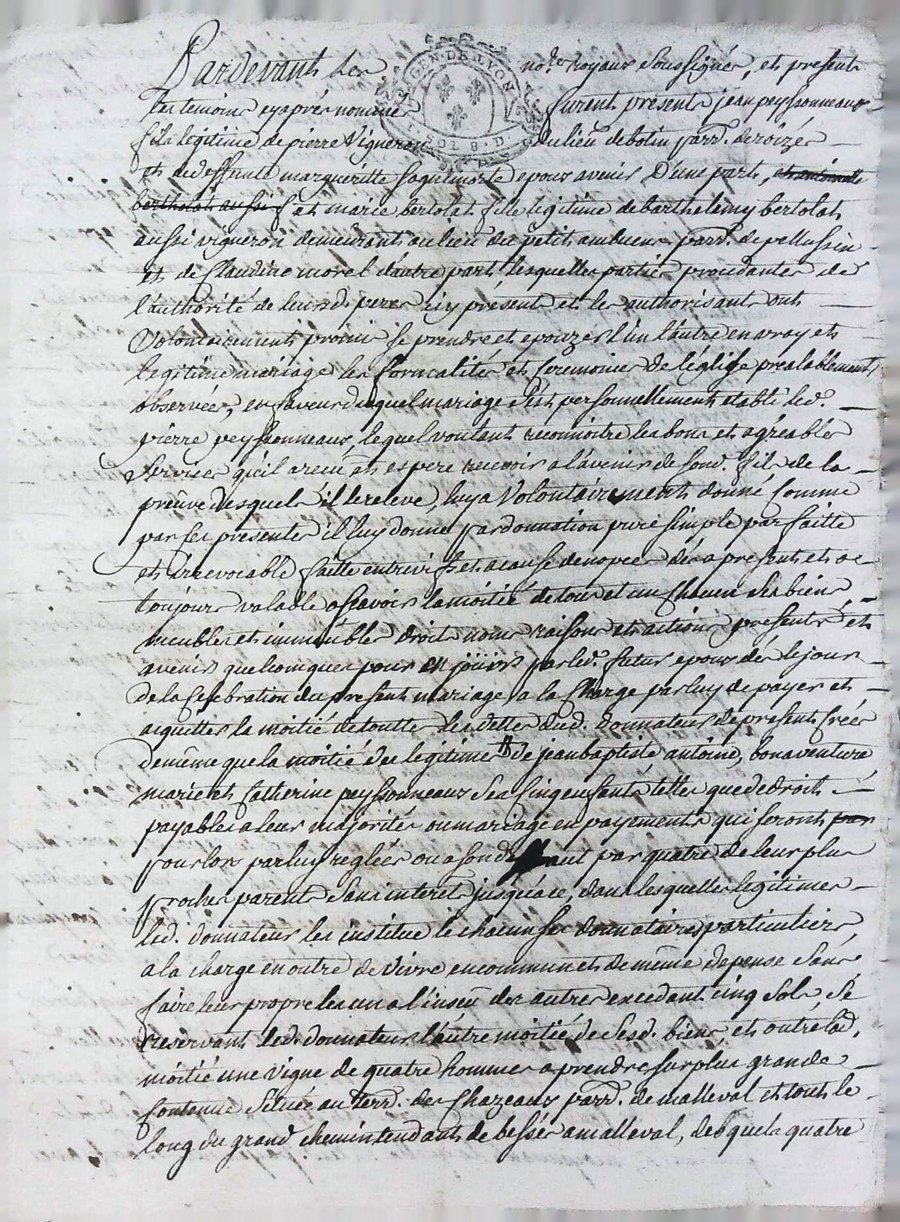 Pardevant les no.res royaux soussignés, et present
les temoins cyaprés nommés furent présents jean peyssonneaux
fils legitime de pierre Vigneron du lieu de bolin parr. de roizey
et de deffunte margueritte epoux avenir D'une part, et antoinette
bertholat aussi f et marie bertolat fille legitime de barthelemy bertolat
aussi vigneron demeurant au lieu du petit embuent parr. de pellussin
et de Claudine morel d'autre part lesquelles parties procedantes de
l'authorité de leursd. peres icy présents et les authorisant ont
Volontairement promis se prendre et epouzer l'un l'autre en vray et
legitime mariage les formalités et ceremonies de l'église prealablement
observées, en faveur duquel mariage s'est personnellement etabli led.
pierre peyssonneaux, lequel voulant reconnoitre les bons et agreables
services qu'il a reçu et espere recevoir a l'avenir de sond. fils de la
preuve desquels il le releve, luy a Volontairement donné comme
par ses presentes il luy donne par donnation pure simple parfaitte
et irrevocable faitte entrevifs et a cause de noces dés a present et a
toujours valable asçavoir la moitié de tous et un chacun ses biens
meubles et immeubles droits noms raisons et actions presents et
avenirs quelconques pour en jouir par led. futur epoux dés le jour
de la Celebration du present mariage, a la Charge par luy de payer et
aquitter la moitié de toutte les dettes dud. donnateur de present créés
de même que la moitié des legitimes de jean baptiste antoine, bonaventure
marie et Catherine peyssonneaux ses cinq enfants telles que de droit
payables a leur majorité ou mariage en payements qui seront par
pour lors par luy reglées ou a fonds par quatre de leurs plus
proches parents sans interet jusqu'a ce, dans lesquelles legitimes
led. donnateur les institue le chacun ses donnataires particuliers,
a la charge en outre de vivre en commun et de même depense sans
faire leur propre les uns a l'insceu des autres excedant cinq sols, se
reservant led. donnateur l'autre moitié de sesd. biens, et outre lad.
moitié une vigne de quatre hommes a prendre sur plus grande
contenue située au terr. des Chazeaux parr. de malleval et tout le
long du grand chemin tendant de bessés a malleval, desquels quatre
GEN. DE LYON
SOL 8. D.